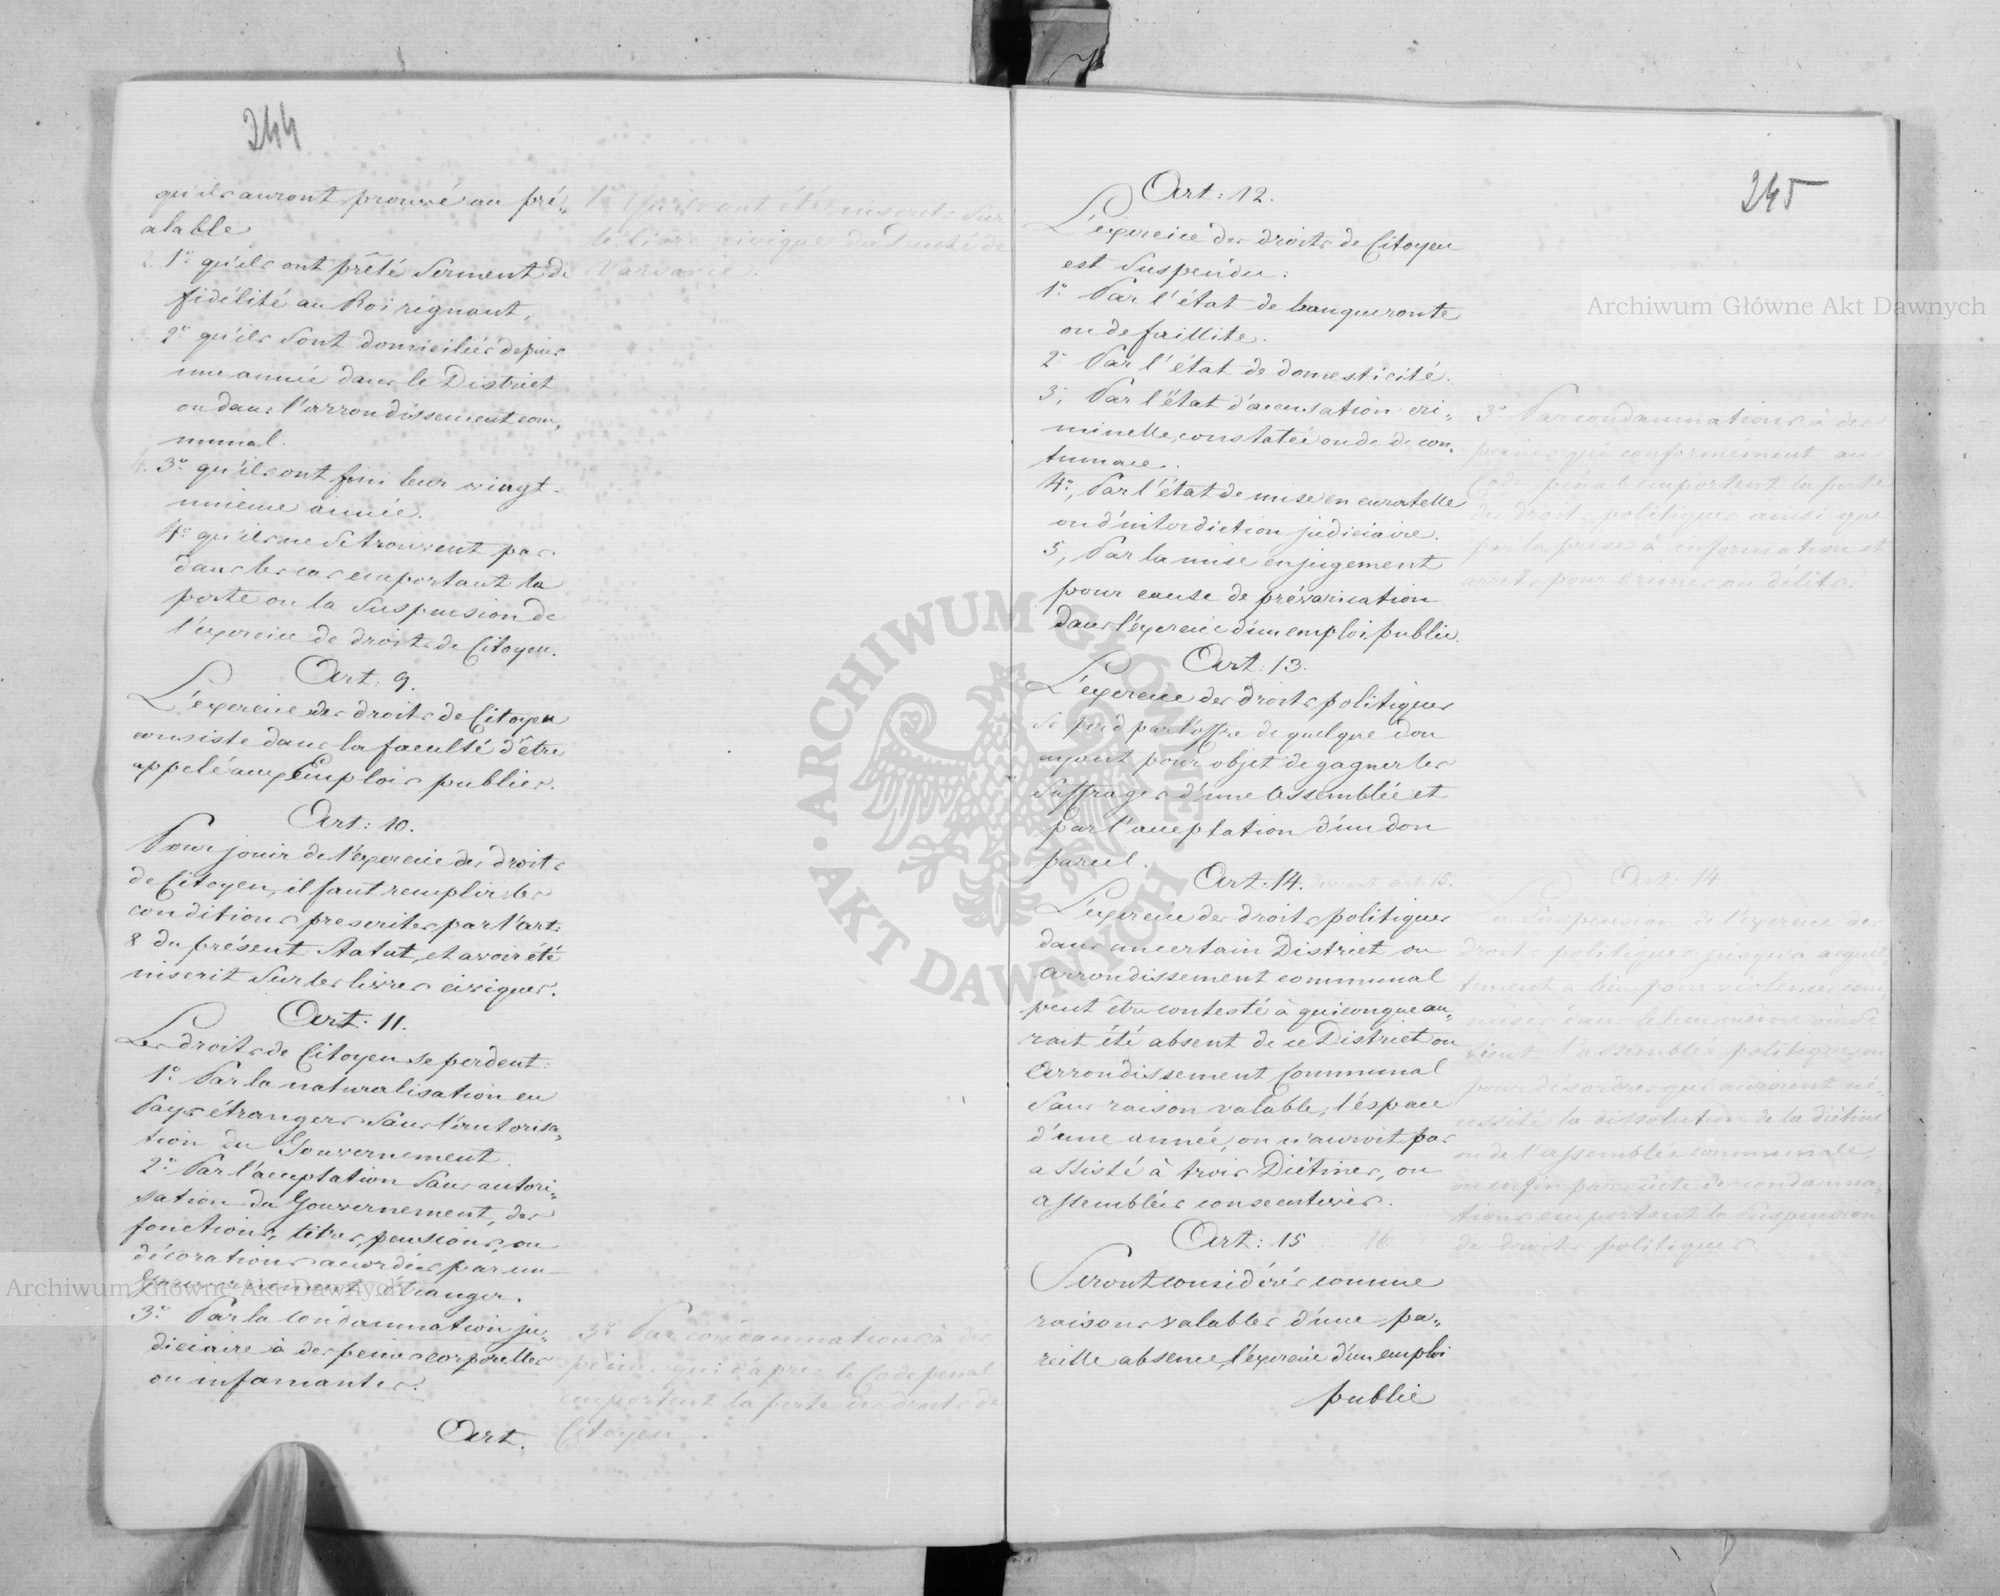 244
qu'ils auront prouvé au pré„
alable
1º qu'ils ont prêté Serment de
fidélité au Roi régnant.
2º qu'ils sont domiciliés depuis
une année dans le District
ou dans l'arrondissement com„
munal.
3º qu'ils ont fini leur vingt-
unième année.
4º qu'ils ne se trouvent pas
dans les cas emportant la
perte ou la Suspension de
l'exercice de droits de Citoyen.
Art: 9.
L'exercice des droits de Citoyen
consiste dans la faculté d'être
appelé aux Emplois publics.
Art: 10.
Pour jouir de l'exercice des droits
de Citoyen, il faut remplir les
conditions prescrites par l'art:
8 du présent Statut, et avoir été
inscrit Sur les livres civiques.
Art: 11.
Les droits de Citoyen se perdent:
1º Par la naturalisation en
Pays étrangers Sans l'autorisa„
tion du Gouvernement.
2º Par l'acceptation Sans autori„
sation du Gouvernement, des
fonctions, titres, pensions, ou
décorations accordées par un
Gouvernement étranger.
3º Par la condamnation ju„
diciaire à des peines corporelles
ou infamantes.
Art.
1º Qu'ils ont été inscrits Sur
le livre civique du Duché de
Varsovie.
3º Par condamnations à des
peines qui d'après le Code pénal
emportent la perte des droits de
Citoyen.
245
Art: 12.
L'exercice des droits de Citoyen
est Suspendu:
1º Par l'état de banqueroute
ou de faillite.
2º Par l'état de domesticité.
3, Par l'état d'accusation cri„
minelle, constatée ou de de con„
tumace.
4º, Par l'état de mise en curatelle
ou d'interdiction judiciaire.
5, Par la mise en jugement
pour cause de prévarication
dans l'exercice d'un emploi public.
Art: 13.
L'exercice des droits politiques
se perd par l'offre de quelque don
ayant pour objet de gagner les
Suffrages d'une Assemblée et
par l'acceptation d'un don
pareil.
Art: 14. devient art. 15.
L'exercice des droits politiques
dans un certain District ou
Arrondissement communal
peut être contesté à quiconque au„
rait été absent de ce District ou
Arrondissement Communal
Sans raison valable, l'espace
d'une année, ou n'auroit pas
assisté à trois Diétines, ou
assemblées consecutives.
Art: 15 16
Seront considérés comme
raisons valables d'une pa„
reille absence, l'exercice d'un emploi
public
3º Par condamnations à des
peines qui conformement au
Code pénal emportent la perte
des droits politiques ainsi que
par la prise à information et
arrêts pour crimes ou délits.
Art: 14
La Suspension de l'exercice de
droits politiques jusqu'à acquit„
tement a lieu pour violences com„
mises dans le lieu même où se
tient l'assemblée politique, ou
pour desordres qui auroient né„
cessité la dissolution de la diétine
ou de l'assemblée communale
ou enfin par suite de condamna„
tions emportant la Suspension
de droits politiques.
Archiwum Główne Akt Dawnych
Archiwum Główne Akt Dawnych
ARCHIWUM GŁÓWNE AKT DAWNYCH